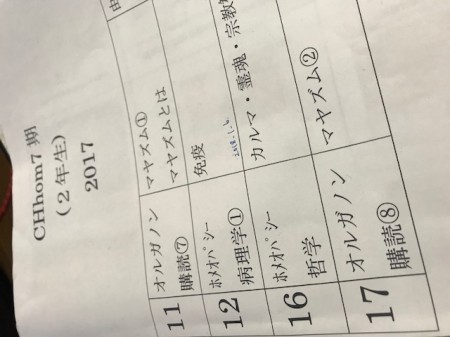 CHhom7 期
(２年生)
2017
由
11
オルガノン
購読⑦
マヤズム①
マヤズムとは
12
ﾎﾒｵﾊﾟｼー
病理学①
免疫
16
ﾎﾒｵﾊﾟｼー
哲学
カルマ・霊魂・宗教
17
オルガノン
購読⑧
マヤズム②